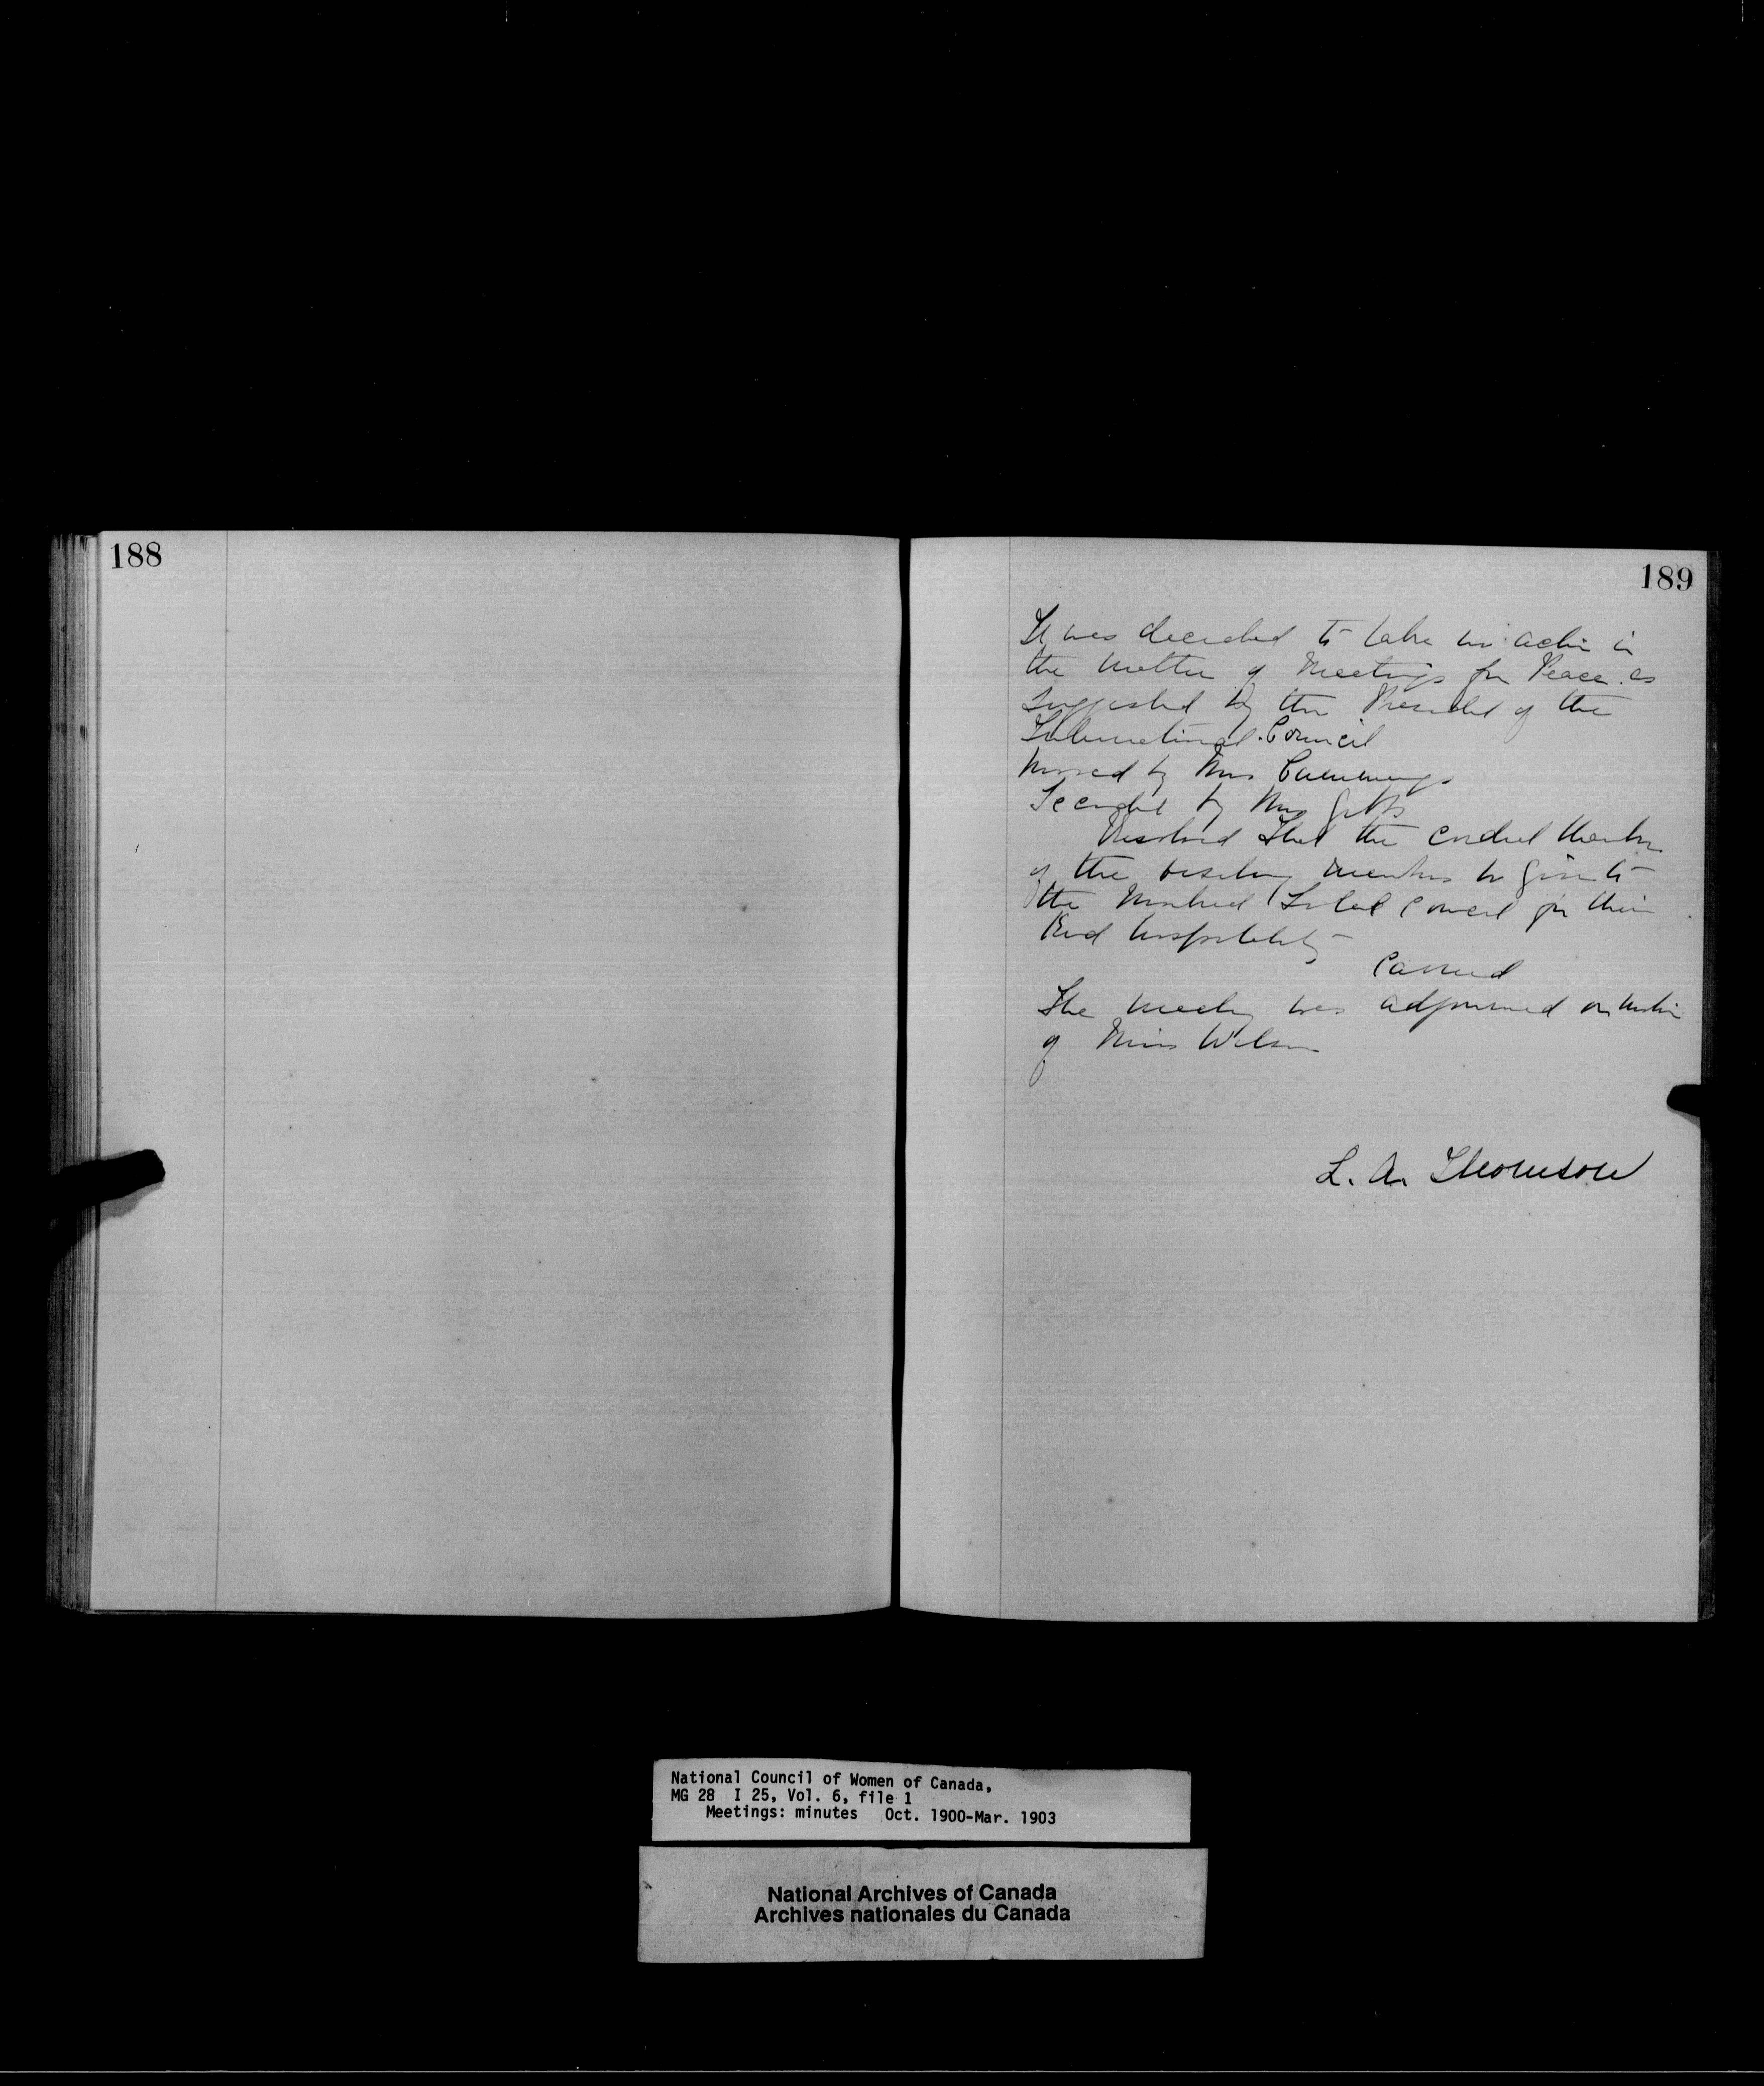 188
189
It was decided to take no action in
the matter of Meetings for Peace as
suggested by the President of the
International Council
Moved by Mrs Cummings
Seconded by Mrs Gibbs
Resolved that the cordial thanks
of the visiting members be given to
the Montreal Local Council for their
kind hospitality
Carried
The meeting was adjourned on motion
of Miss Wilson
L. A. Thomson
National Council of Women of Canada,
MG 28 I 25, Vol. 6, file 1
Meetings: minutes Oct. 1900-Mar. 1903
National Archives of Canada
Archives nationales du Canada